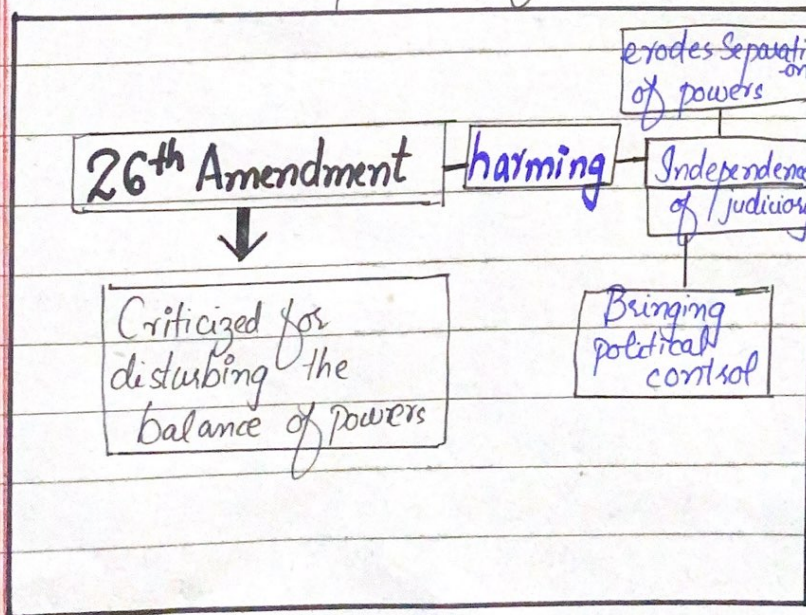 erodes Separati
on
of powers
26th Amendment
harming
Independenc
of judiciar
Criticized for
disturbing the
balance of powers
Bringing
political
control